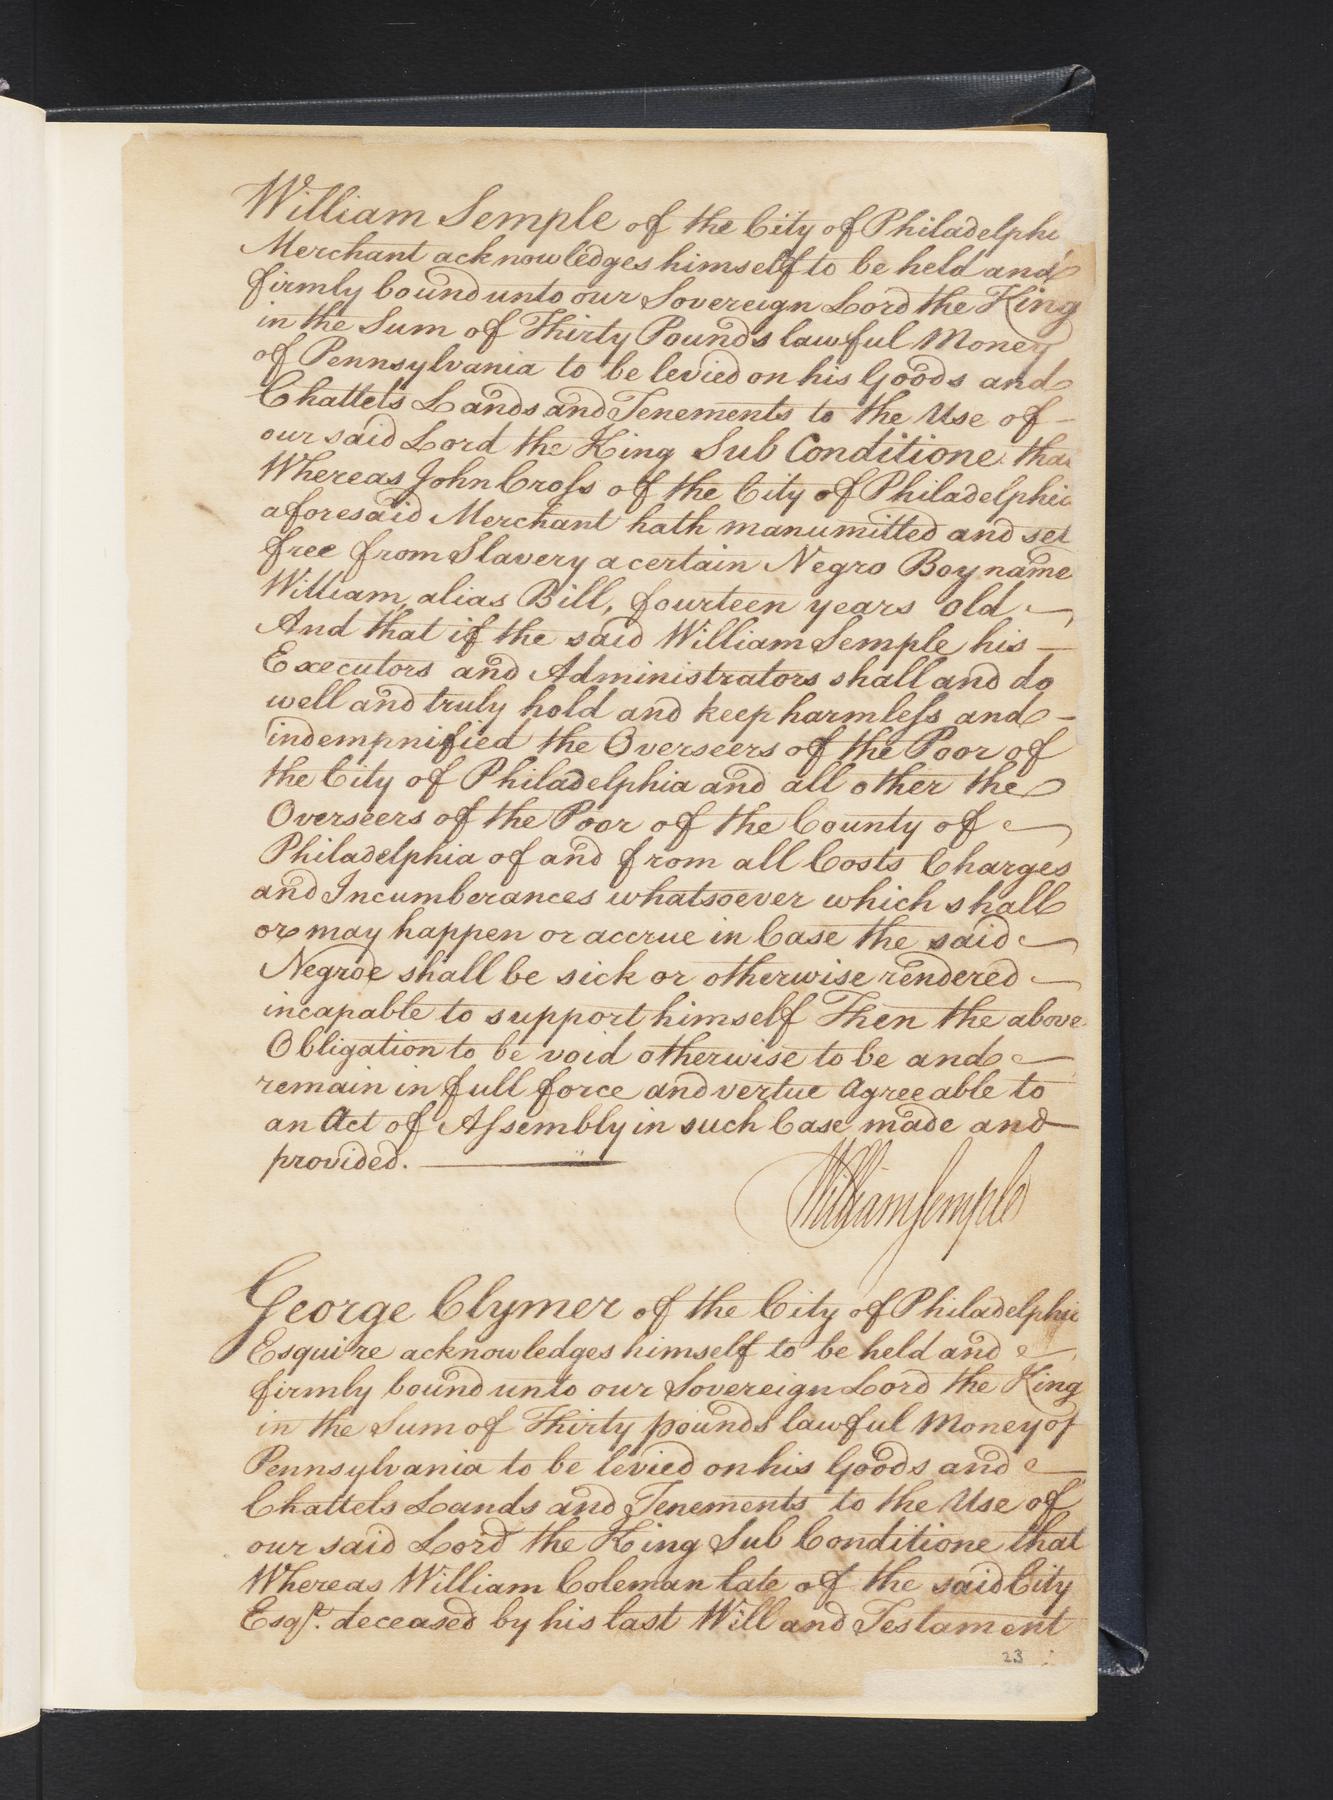 William Semple of the City of Philadelphi
Merchant acknowledges himself to be held and
firmly bound unto our Sovereign Lord the King
in the Sum of Thirty Pounds lawful Money
of Pennsylvania to be levied on his Goods and
Chattels Lands and Tenements to the Use of
our said Lord the King Sub Conditione tha
Whereas John Cross of the City of Philadelphia
aforesaid Merchant hath manumitted and set
free from Slavery a certain Negro Boy name
William, alias Bill, fourteen years old
And that if the said William Semple his
Executors and Administrators shall and do
well and truly hold and keep harmless and
indempnified the Overseers of the Poor of
the City of Philadelphia and all other the
Overseers of the Poor of the County of
Philadelphia of and from all Costs Charges
and Incumberances whatsoever which shall
or may happen or accrue in Case the said
Negroe shall be sick or otherwise rendered
incapable to support himself Then the above
Obligation to be void otherwise to be and
remain in full force and vertue Agreeable to
an Act of Assembly in such Case made and
provided.
William Semple
George Clymer of the City of Philadelphia
Esquire acknowledges himself to be held and
firmly bound unto our Sovereign Lord the King
in the Sum of Thirty pounds lawful Money of
Pennsylvania to be levied on his Goods and
Chattels Lands and Tenements to the Use of
our said Lord the King Sub Conditione that
Whereas William Coleman late of the said City
Esqr. deceased by his last Will and Testament
23